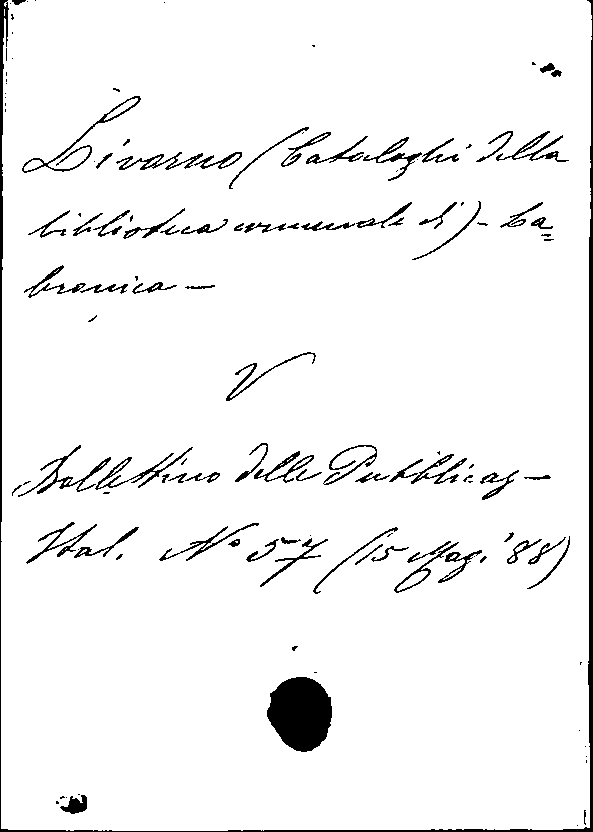 Livorno (Cataloghi della
biblioteca comunale di) - La=
bronica -
V
Bollettino delle Pubblicaz -
Ital. No 57 (15 Mag. '88)